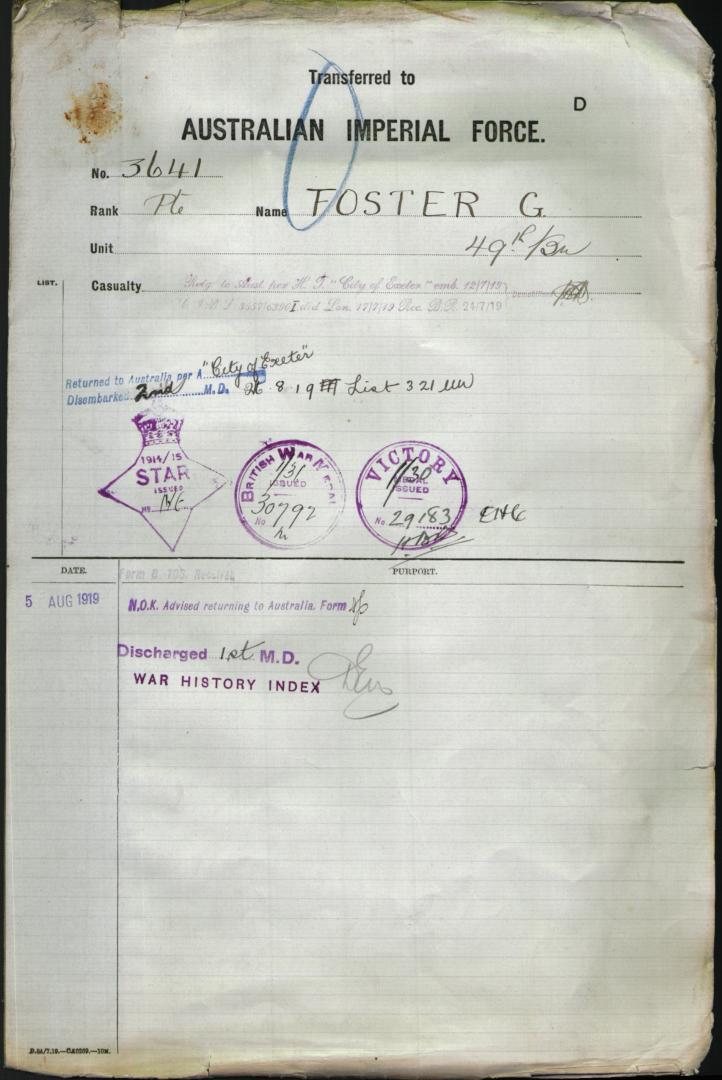 Transferred to
D
AUSTRALIAN IMPERIAL FORCE.
No. 3641
Rank Pte Name FOSTER G.
Unit 49th Bn
LIST.
Casualty Retg to Aust per H.T. "City of Exeter" emb. 12/7/19
Lon. 17/7/19 Rec. B.R. 24/7/19
Returned to Australia per A "City of Exeter"
Disembarked 2nd M.D. 26 8 19 List 321
1914/15
STAR
ISSUED
No.
BRITISH WAR MEDAL
1/31
ISSUED
30792
No
VICTORY
1/30
MEDAL
ISSUED
No. 29183
DATE.
PURPORT.
Form B. 103. Received
5 AUG 1919
N.O.K. Advised returning to Australia. Form
Discharged 1st M.D.
WAR HISTORY INDEX
D.84/7.19.—C.A6269.—10M.